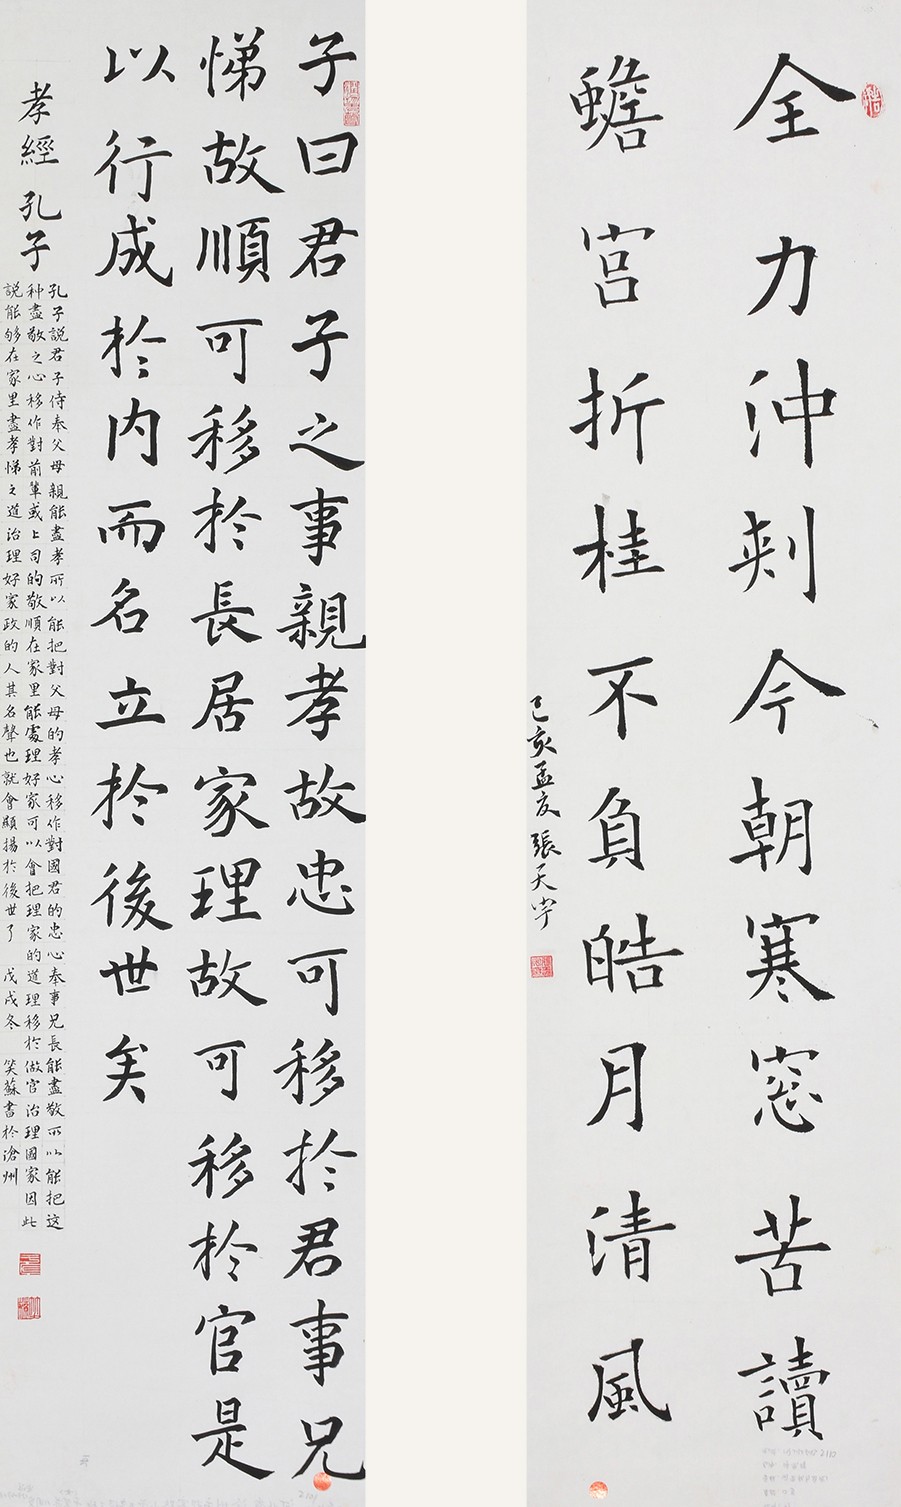 全力沖刺今朝寒窓苦讀
蟾宮折桂不負皓月清風
己亥孟夏張天宇
子曰君子之事親孝故忠可移於君事兄
悌故順可移於長居家理故可移於官是
以行成於内而名立於後世矣
孝經孔子
孔子説君子侍奉父母親能盡孝所以能把對父母的孝心移作對國君的忠心奉事兄長能盡敬所以能把这
种盡敬之心移作對前輩或上司的敬順在家里能處理好家可以會把理家的道理移於做官治理國家因此
説能够在家里盡孝悌之道治理好家政的人其名聲也就會顯揚於後世了 戊戌冬 笑蘇書於滄州